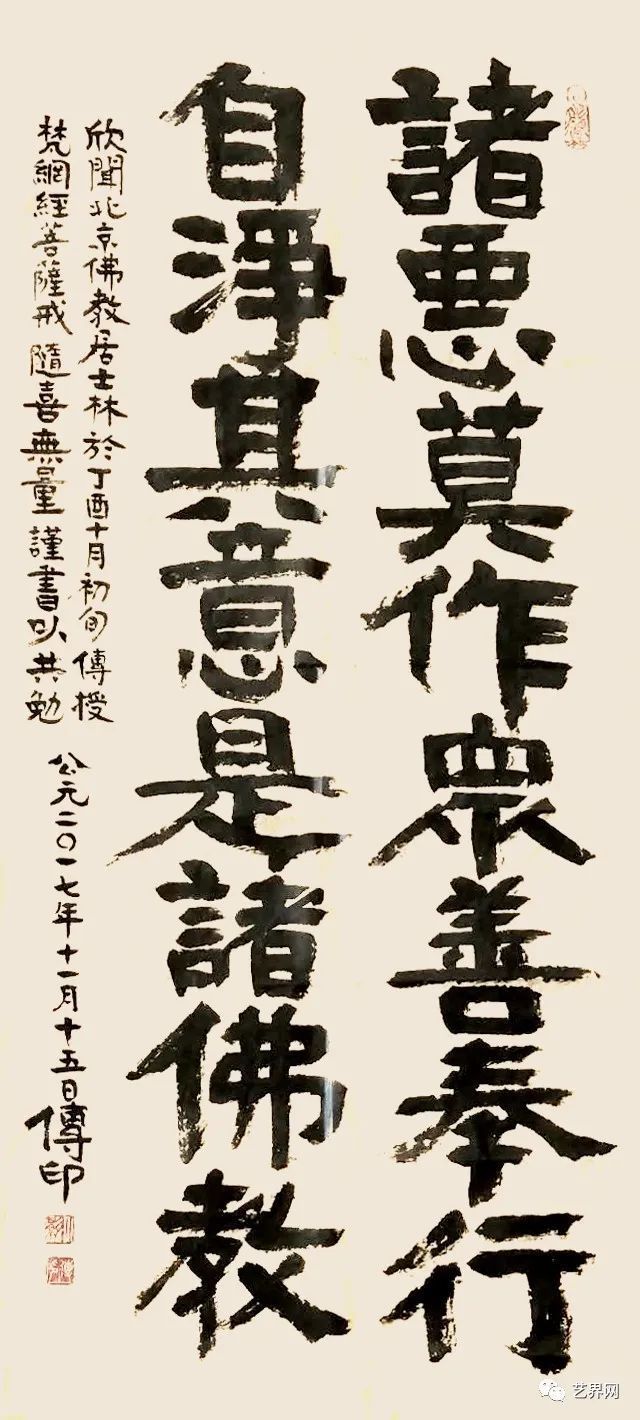 諸惡莫作眾善奉行
自淨其意是諸佛教
欣聞北京佛教居士林於丁酉十月初旬傳授
梵網經菩薩戒隨喜無量謹書以共勉
公元二〇一七年十一月十五日傳印
艺界网